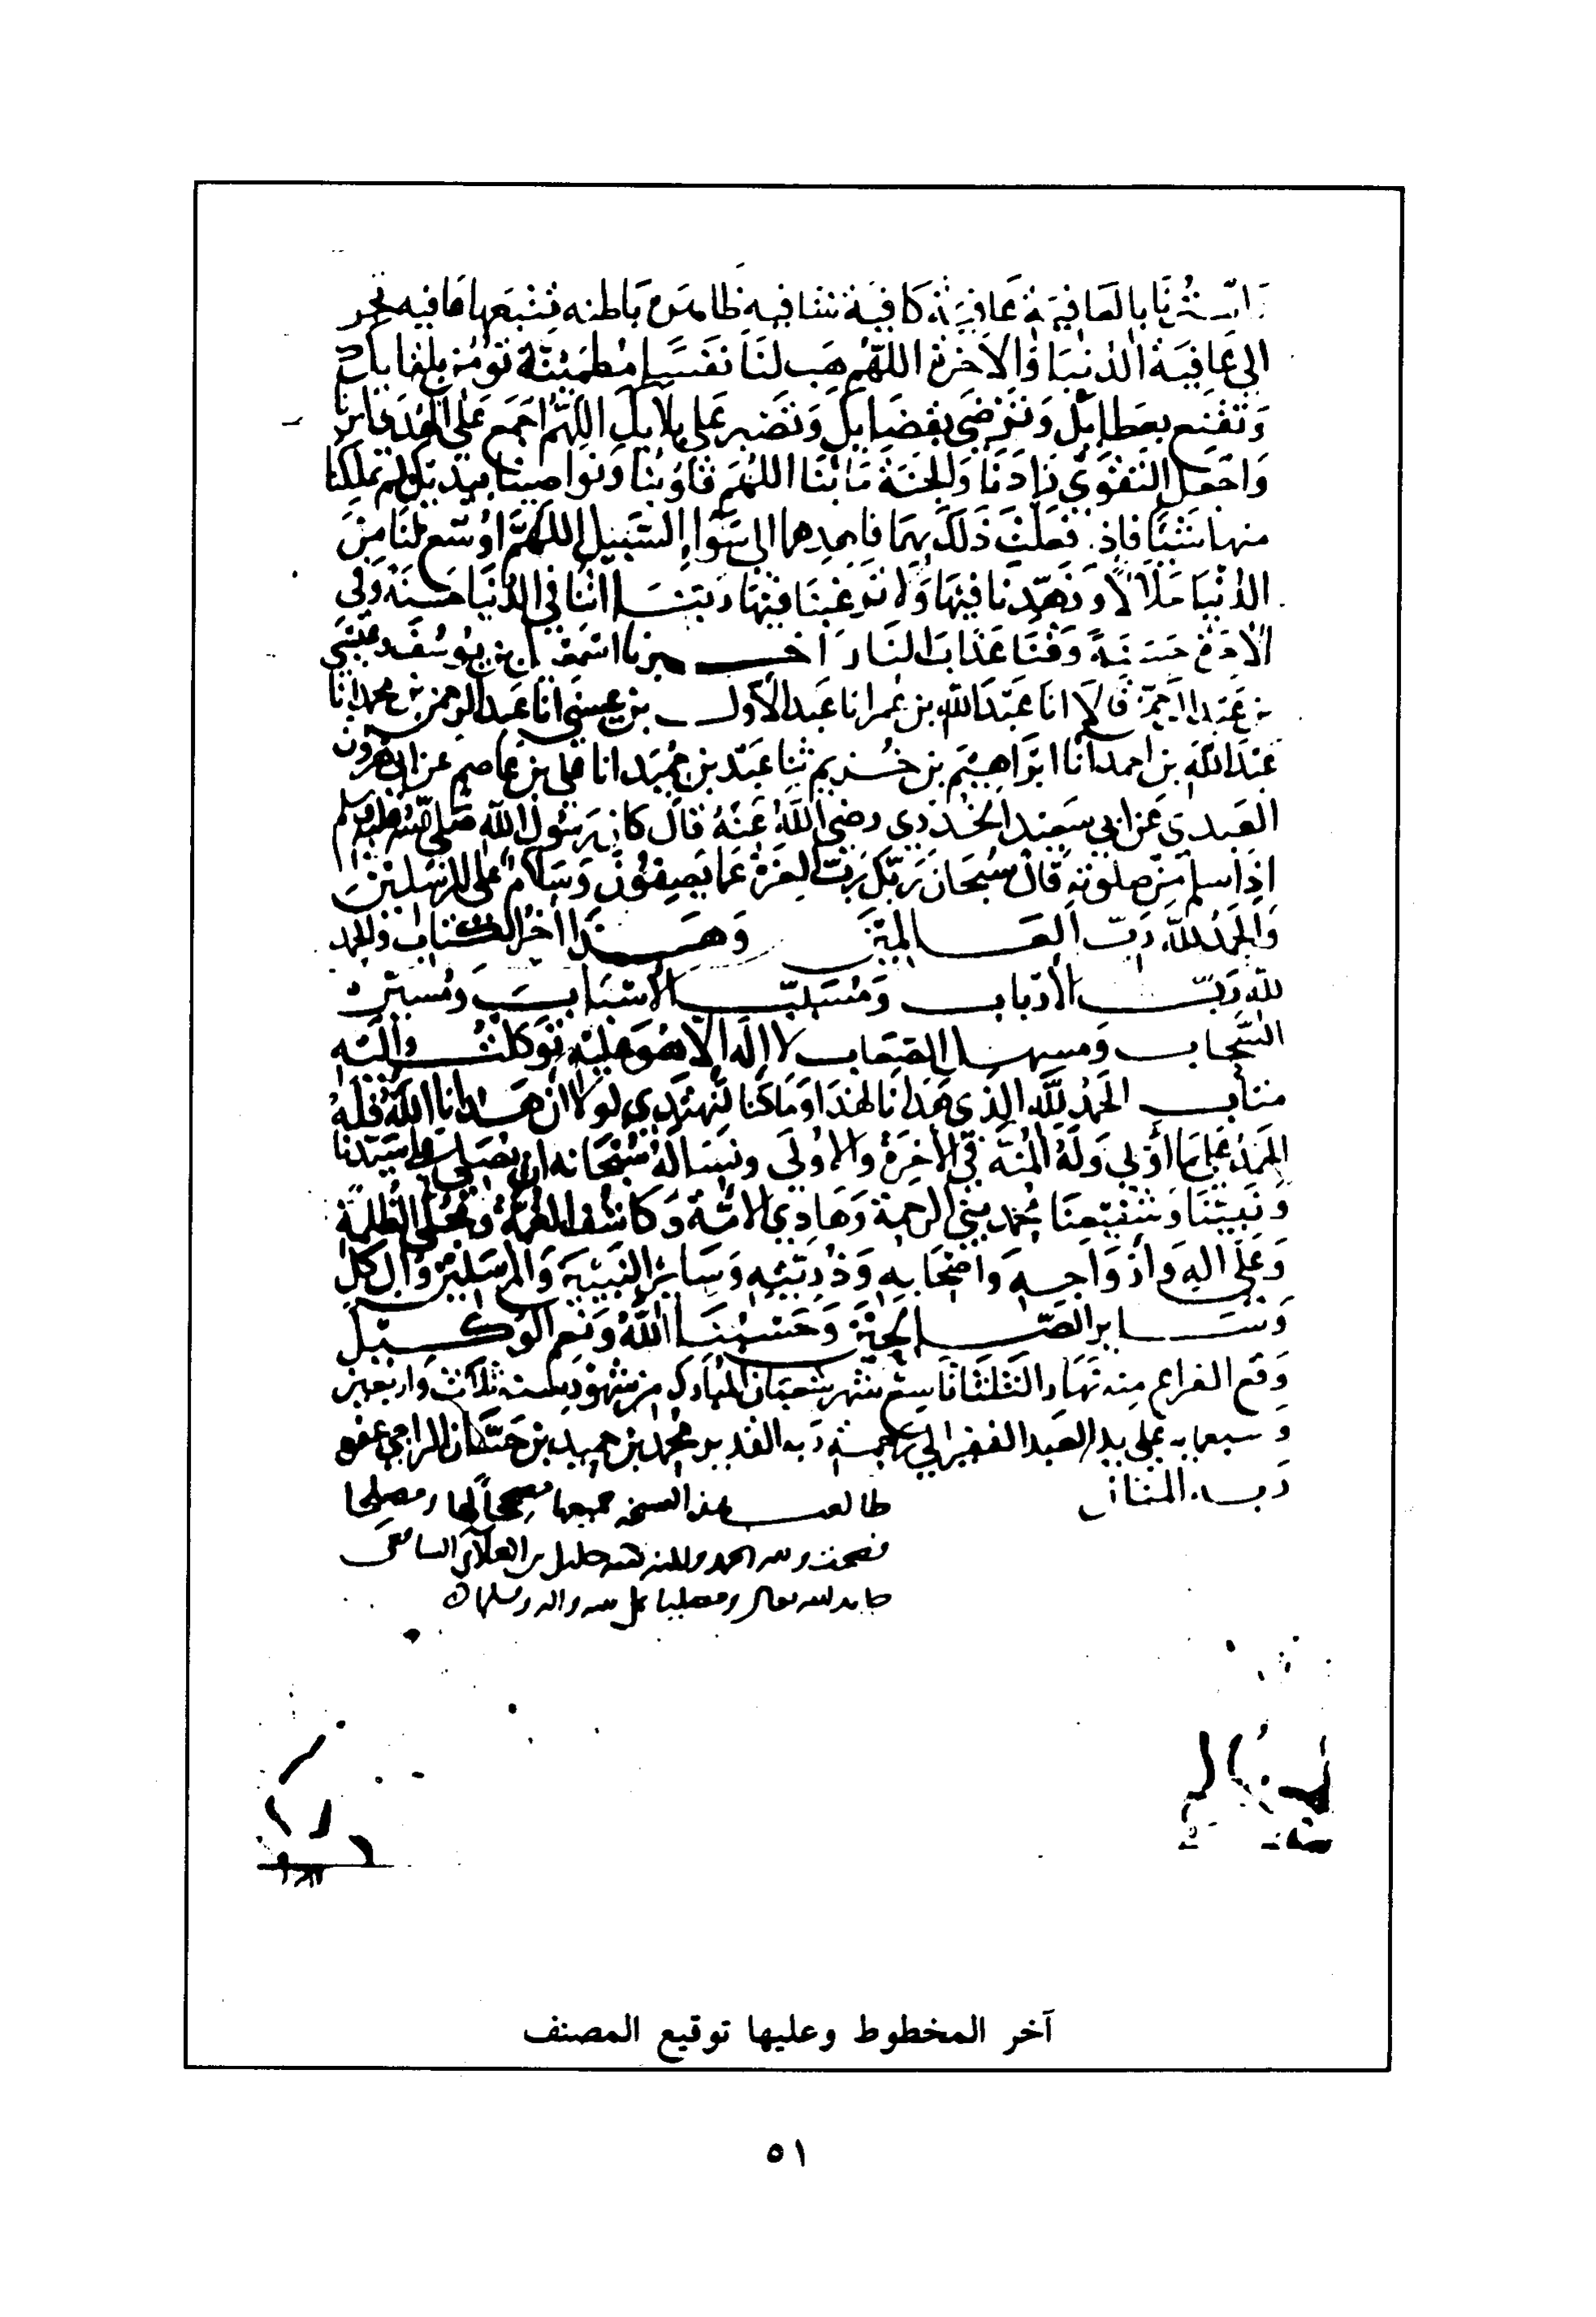 واسترنا بالعافية عافية كافية شافيه ظاهره باطنه تتبعها عافيه تجر
الى عافية الدنيا والاخرة اللهم هب لنا نفسا مطمئنة تؤمن بلقايك
وتقنع بعطايك وترضى بقضايك وتصبر على بلايك اللهم اجمع على الهدى امرنا
واجعل التقوى زادنا والجنة مابنا اللهم قلوبنا ونواصينا بيديك لم تملكنا
منها شيئا فاذ فعلت ذلك بهما فاهدهما الى سواء السبيل اللهم اوسع لنا من
الدنيا حلالا وزهدنا فيها ولا ترغبنا فيها ربنا اتنا في الدنيا حسنة وفي
الاخرة حسنة وقنا عذاب النار اخبرنا اسمعيل بن يوسف وعيسى
بن عبد الرحمن قالا انا عبد الله بن عمر انا عبد الاول بن عيسى انا عبد الرحمن بن محمد انا
عبد الله بن احمد انا ابراهيم بن خزيم ثنا عبد بن حميد انا علي بن عاصم عن ابي هرون
العبدي عن ابي سعيد الخدري رضي الله عنه قال كان رسول الله صلى الله عليه وسلم
اذا سلم من صلوته قال سبحان ربك رب العزة عما يصفون وسلام على المرسلين
والحمد لله رب العالمين وهذا آخر الكتاب والحمد
لله رب الارباب ومسبب الاسباب ومسير
السحاب ومسهل الصعاب لا اله الا هو عليه توكلت واليه
متاب الحمد لله الذي هدانا لهذا وما كنا لنهتدي لولا ان هدانا الله فله
الحمد على ما اولى وله المنة في الآخرة والاولى ونساله سبحانه ان يصلي على سيدنا
ونبينا وشفيعنا محمد نبي الرحمة وهادي الامة وكاشف الغمة ومجلي الظلمة
وعلى اله وازواجه واصحابه وذريته وسائر النبيين والمرسلين وآل كل
وسائر الصالحين وحسبنا الله ونعم الوكيل
وقع الفراغ منه نهار الثلثا تاسع شهر شعبان المبارك من شهور سنه ثلاث واربعين
وسبعمايه على يد العبد الفقير الى رحمة ربه القدير محمد بن حميد بن الراجي عفو
ربه المنان
طالعت هذه النسخه جميعها مصححا لها ومصلحا
فصحت ولله الحمد والمنه كتبه خليل بن العلائي الشافعي
حامدا لله تعالى ومصليا على نبيه واله ومسلما
آخر المخطوط وعليها توقيع المصنف
٥١